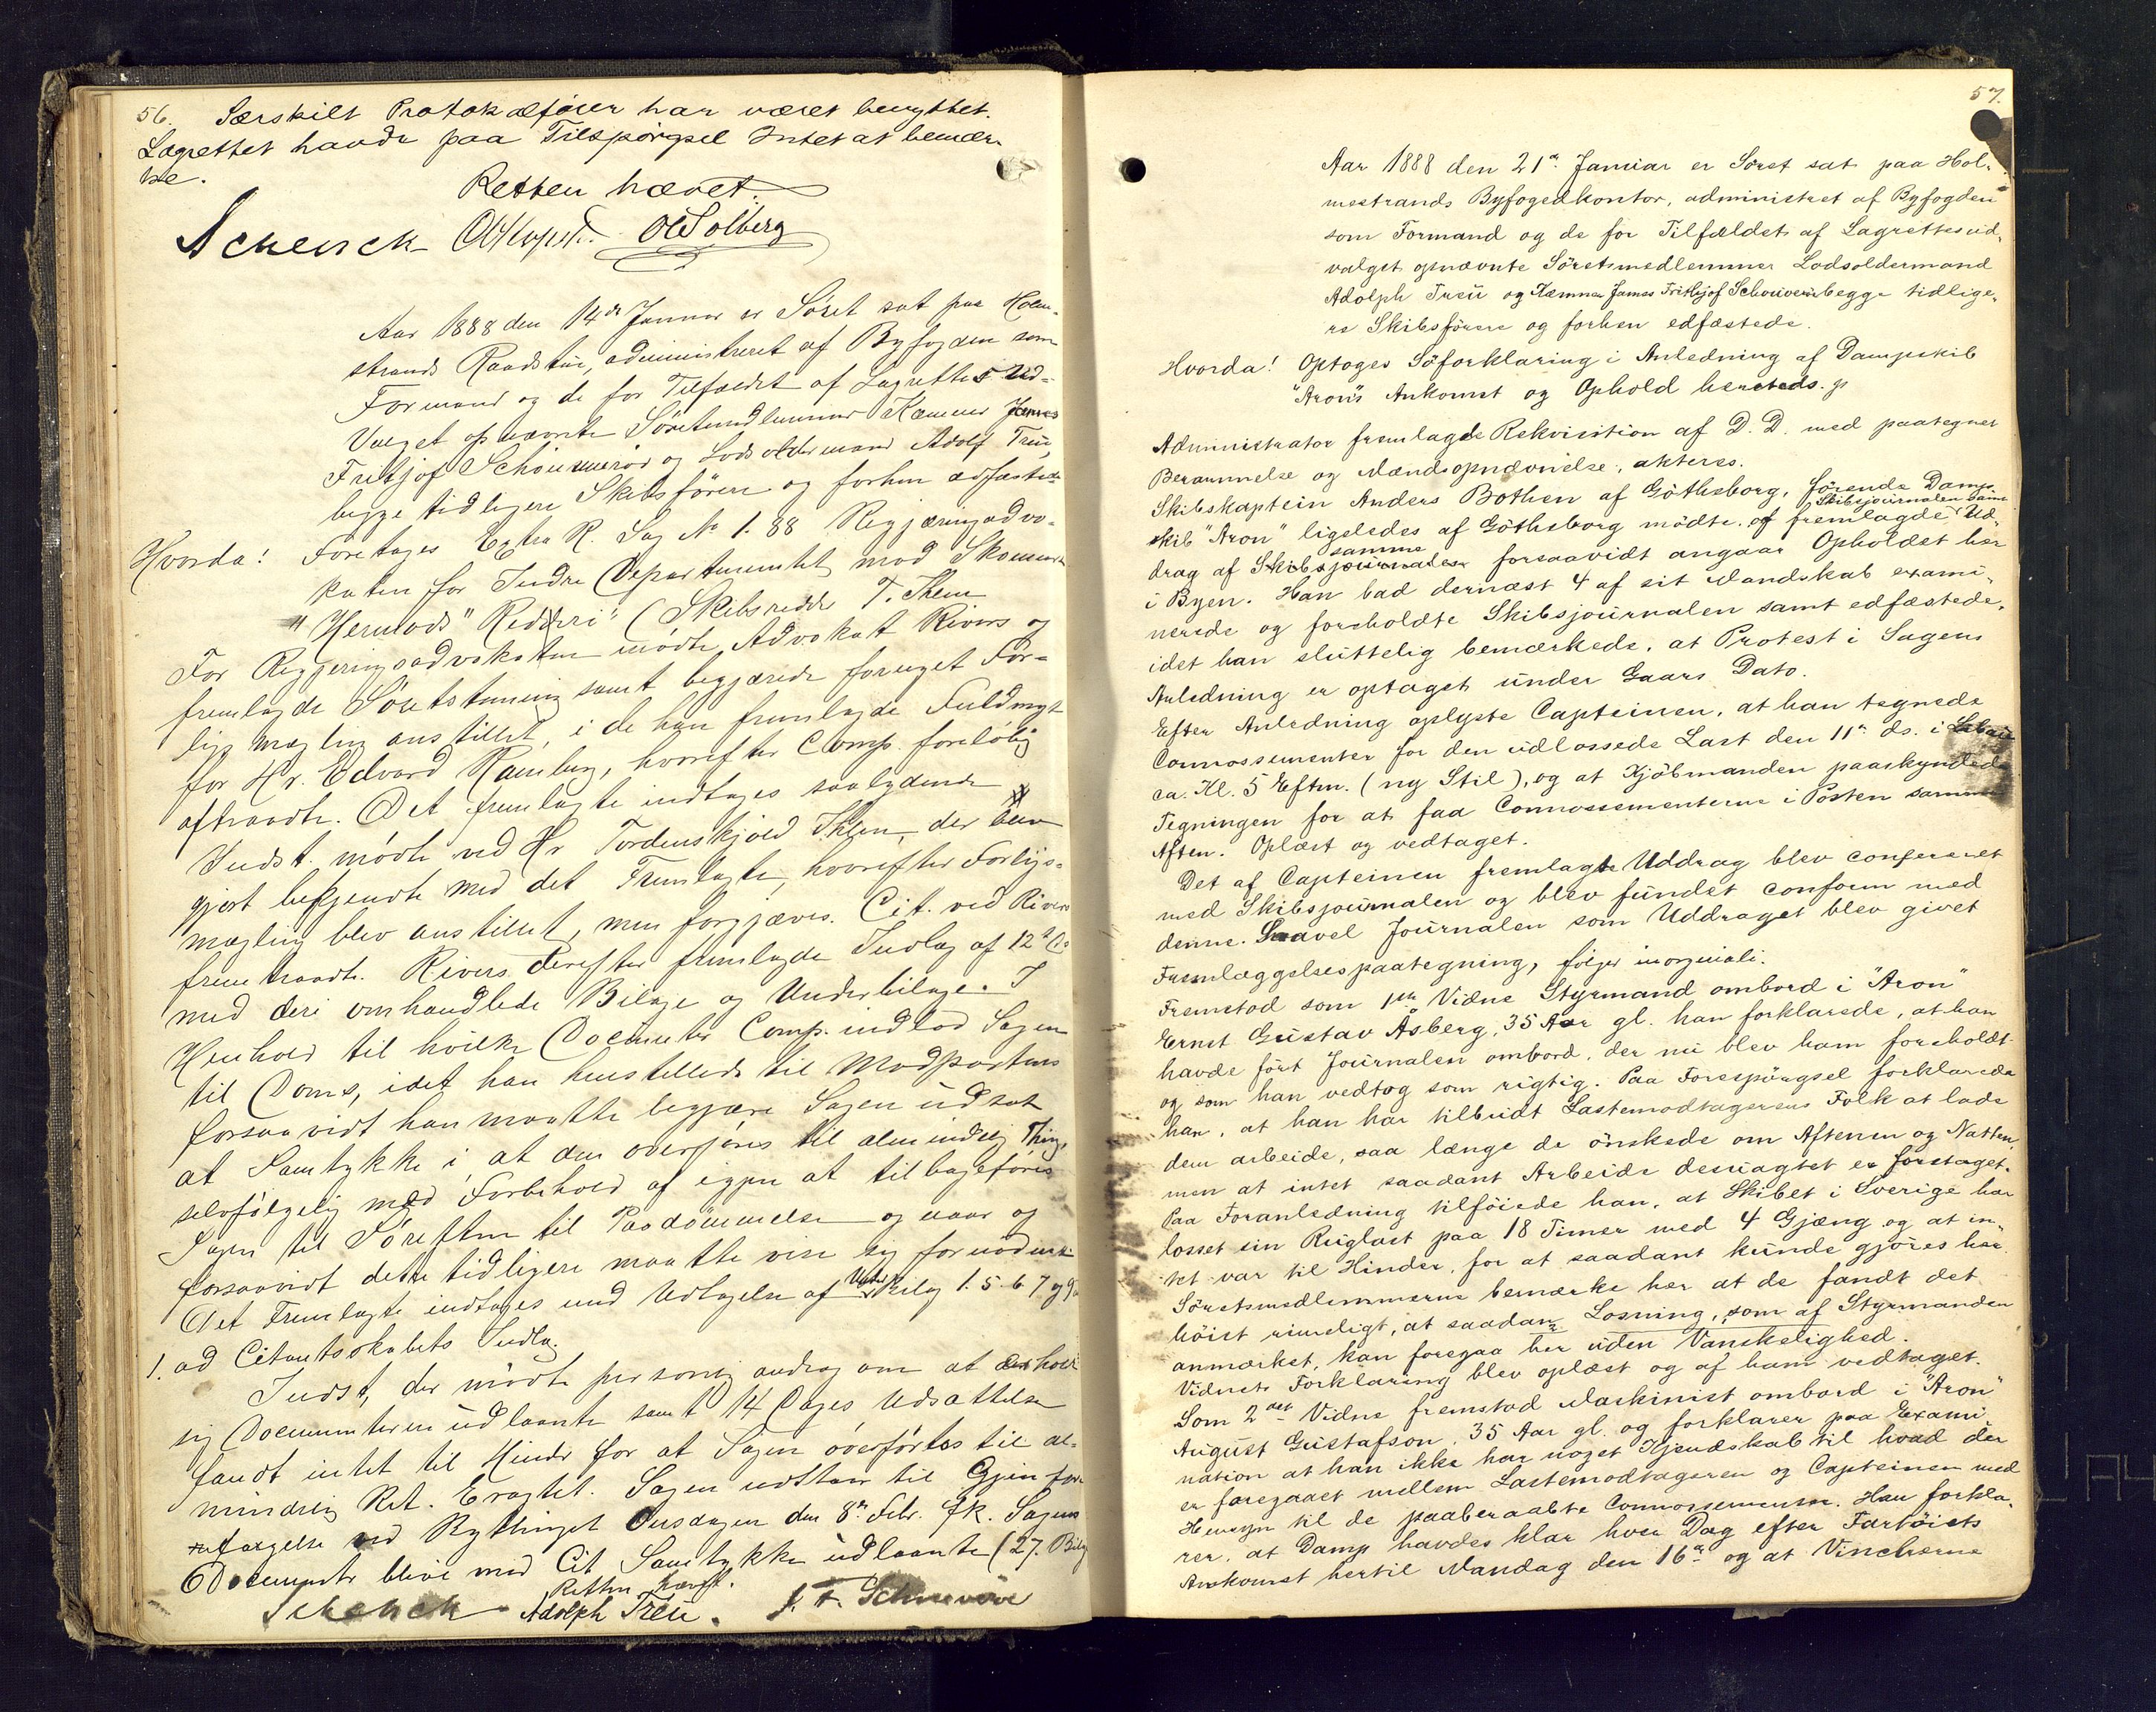 56. Særskilt Protokolfører har været benyttet.
Lagrettet havde paa Tilspørgsel Intet at bemær-
ke.
Retten hævet.
Schenck OlSolberg
Aar 1888 den 14de Januar er Söret sat paa Holm-
strands Raadstue, administreret af Byfogden som
Formand og de for Tilfældet af Lagrettes Ud-
valget opnævnte Söretsmedlemmer Kæmner James
Fritjof Schouweröe og Lodsoldermand Adolf Treu,
begge tidligere Skibsförere og forhen edfæstede
Hvorda! Foretoges Extra R. Sag No 1. 88 Regjæringsadvo-
katen for Indre Departementet mod Skonnert
"Hermods" Rederi (Skibsreder T. Them
For Regjeringsadvokaten mödte Advokat Rivers og
fremlagde Söretstævning samt begjærede foretaget For-
ligsmægling anstillet, i de han fremlagde Fuldmagt
for Hr. Edvard Ramberg, hvorefter Comp. foreløbig
aftraadte. Det fremlagte indtages saalydende
Indst. mödte ved Hr Tordenskjold Them, der blev
gjort bekjendt med det Fremlagte, hvorefter Forligs-
mægling blev anstillet, men forgjæves. Cit. ved Rivers
fremtraadte. Rivers derefter fremlagde Indlæg af 12te ds
med deri omhandlede Bilage og Underbilage. I
Henhold til hvilke Documenter Comp. indlod Sagen
til Doms, idet han henstillede til Modparten
forsaavidt han maatte begjære Sagen udsat
at Samtykke i, at den overføres til almindelig Thing,
selvfölgelig med Forbehold af igjen at tilbageføres
Sagen til Söretten til Paadömmelse og naar og
forsaavidt dette tidligere maatte vise sig fornödent
Det Fremlagte indtages med Udtagelse af Underbilag 1. 5. 6 7 og 9
1. ad Citantskabets Indlæg.
Indst, der mödte personlig androg om at erholde
sig Documenterne udlaante samt 14 Dages Udsættelse
fandt intet til Hinder for at Sagen överförtes til al-
mindelig Ret. Eragtet. Sagen udstaar til Gjenfor-
retagelse ved Bythinget Onsdagen den 8de Febr. fk. Sagens
Documenter blive med Cit Samtykke udlaante (27. Bilag
Retten hævet.
Schenck Adolph Treu. J. F. Schouveröe
57.
Aar 1888 den 21de Januar er Söret sat paa Hol-
mestrands Byfogedkontor, administret af Byfogden
som Formand og de for Tilfældet af Lagrettesud-
valget opnævnte Söretsmedlemmer Lodsoldermand
Adolph Treu og Kæmner James Frithjof Schouveröe begge tidlige-
re Skibsförere og forhen edfæstede.
Hvorda! Optoges Söforklaring i Anledning af Dampskib
"Aron's Ankomst og Ophold hersteds.
Administrator fremlagde Rekvisition af D. D. med paategnet
Berammelse og Mandsopnævnelse, akteres.
Skibskaptein Anders Bothen af Götheborg, förende Damp-
skib "Aron" ligeledes af Götheborg mödte, og fremlagde Skibsjournalen samt Ud-
drag af samme forsaavidt angaar Opholdet her
i Byen. Han bad dernæst 4 af sit Mandskab exami-
nerede og foreholdte Skibsjournalen samt edfæstede,
idet han sluttelig bemærkede, at Protest i Sagens
Anledning er optaget under Gaars Dato.
Efter Anledning oplyste Capteinen, at han tegnede
Connossementer for den udlossede Last den 11te ds. i
ca. Kl. 5 Eftm. (ny Stil), og at Kjöbmanden paaskyndede
Tegningen for at faa Connossementerne i Posten samme
Aften. Oplæst og vedtaget.
Det af Capteinen fremlagte Uddrag blev confereret
med Skibsjournalen og blev fundet conform med
denne. Saavel Journalen som Uddraget blev givet
Fremlæggelsespaategning, følger inoriginali.
Fremstod som 1ste Vidne Styrmand ombord i "Aron"
Ernst Gustav Åsberg, 35 Aar gl. han forklarede, at han
havde fört Journalen ombord, der nu blev ham foreholdt
og som han vedtog som rigtig. Paa Forespörgsel forklarede
han, at han har tilbudt Lastemodtagerens Folk at lade
dem arbeide, saa længe de önskede om Aftenen og Natten,
men at intet saadant Arbeide desuagtet er foretaget.
Paa Foranledning tilföiede han, at Skibet i Sverige har
losset sin Ruglast paa 18 Timer med 4 Gjæng og at in-
tet var til Hinder, for at saadant kunde gjöres her.
Söretsmedlemmerne bemærke her at de fandt det
höist rimeligt, at saadan Losning, som af Styrmanden
anmærket, kan foregaa her uden Vanskelighed.
Vidnets Forklaring blev oplæst og af ham vedtaget.
Som 2det Vidne fremstod Maskinist ombord i "Aron"
August Gustafson, 35 Aar gl. og forklarer paa Exami-
nation at han ikke har noget Kjendskab til hvad der
er foregaaet mellem Lastemodtageren og Capteinen med
Hensyn til de paaberaabte Connossementer. Han forkla-
rer, at Damp havdes klar hver Dag efter Fartöiets
Ankomst hertil Mandag den 16de og at Vincherne